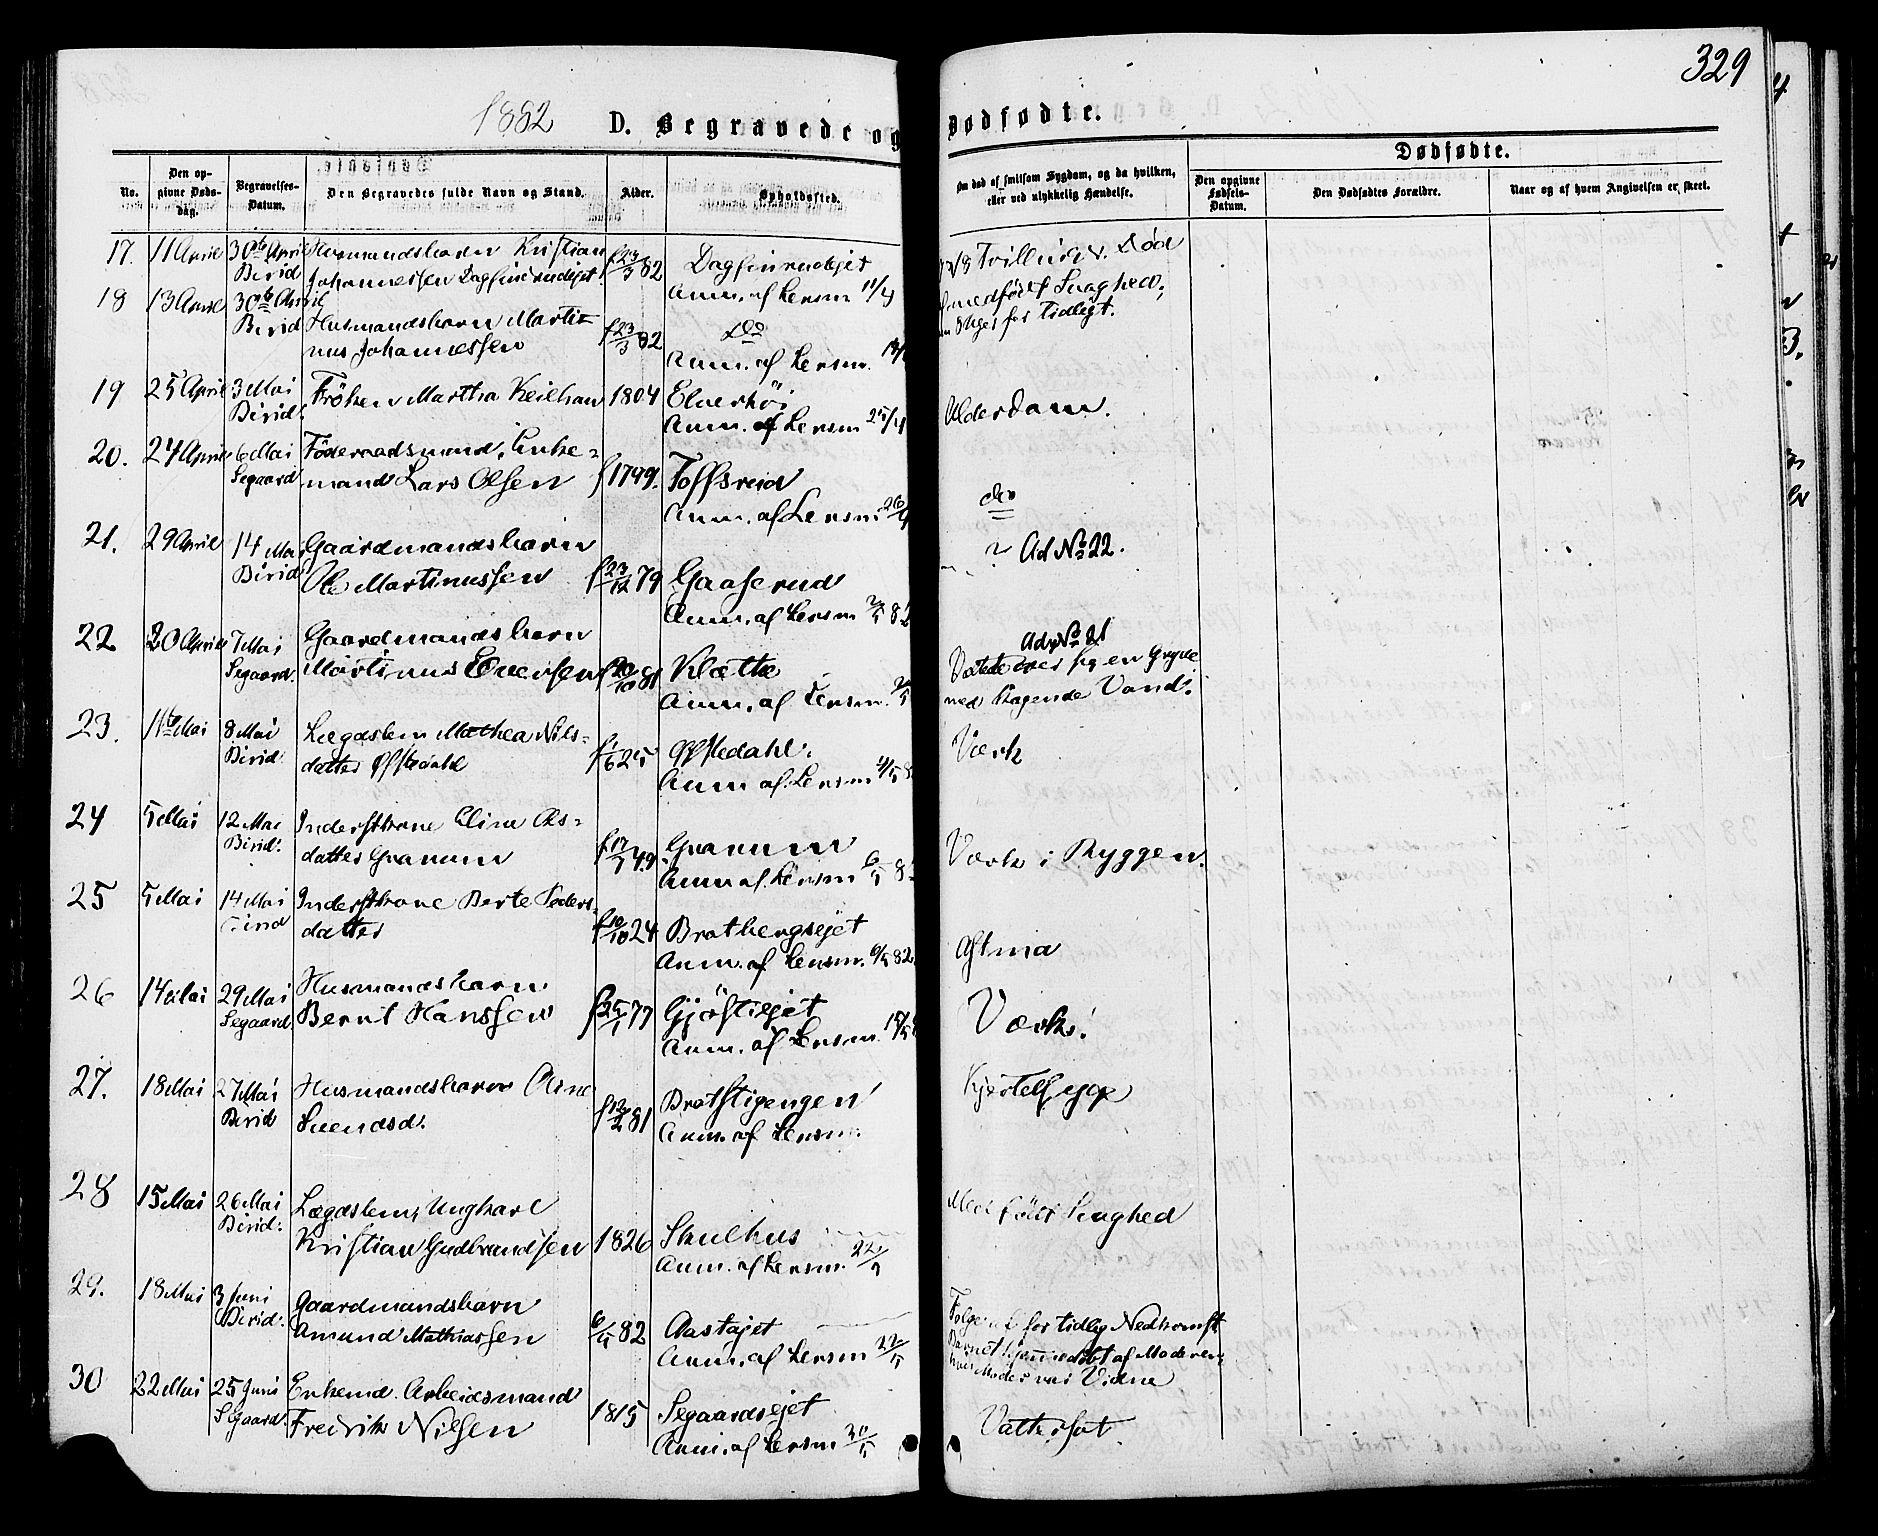 329
1882 D. Begravede og Dødfødte.
No.
Den opgivne Døds-dag.
Begravelses-Datum.
Den Begravedes fulde Navn og Stand.
Alder.
Opholdssted.
Om død af smitsom Sygdom, og da hvilken, eller ved ulykkelig Hændelse.
Dødfødte.
Den opgivne Fødsels-Datum.
Den Dødfødtes Forældre.
Naar og af hvem Angivelsen er skeet.
17. 11 April 30te April Husmandsbarn Kristian f 23/3 82 Dagfinrudejet
Birid Johannessen Dagfinrudejet. Anm. af Lensm 11/4
18 13 April 30te April
Birid Husmandsbarn Marti-
nus Johannessen f 23/3 82 do
Anm. af Lensm.
Tvillinder. Død
medfødt Svaghed,
Uger for tidligt.
19 25 April 3 Mai Frøken Martha Keilhau 1804 Elverhöi
Birid. Anm. af Lensm 25/4
Alderdom.
20. 24 April 6 Mai Föderaadsmand, Enke-
Segaard mand Lars Olsen f 1799. Toffsrud
Anm. af Lensm 26/4
do
21. 29 April 14 Mai Gaardmandsbarn
Birid Ole Martinussen f 23/12 79 Gaaserud
Anm. af Lensm 2/5 82
? Ad No 22.
22 20 April 7 Mai Gaardmandsbarn
Segaard Martinus Evensen f 20/10 81 Klætte
Anm. af Lensm.
Ad No 21
Væltede over sig en Gryde
med kogende Vand.
23. 1ste Mai 8 Mai Lægdslem Mathea Nils-
Birid datter Øfstedahl f 1/6 25 Øfstedahl.
Anm af Lensm
Værk
24 5 Mai 12 Mai Inderstkone Eline Ols-
Birid. datter Granum f 17/7 49 Granum
Anm af. Lensm 6/5 82
Værk i Ryggen.
25 5 Mai 14 Mai Inderstkone Berte Peders-
Birid datter f 10/10 24 Bratbergsejet
Anm. af Lensm. 6/5 82
Astma
26 14 Mai 29 Mai Husmandsbarn
Segaard Bernt Hanssen f 25/1 77 Gjöstiejet
Anm. af Lensm.
Værk.
27. 18 Mai 27 Mai Husmandsbarn Oline
Birid Svendsd. f 12/2 81 Bratstigengen
Anm. af Lensm.
Kjertelsyge
28 15 Mai 26 Mai Lægdslem, Ungkarl
Birid. Kristian Gudbrandsen 1826 Skulhus
Anm. af Lensm. 22/5
Medfödt Svaghed
29. 18 Mai 3 Juni Gaardmandsbarn
Birid. Amund Mathiassen 6/5 82 Aastajet
Anm. af Lensm 22/5
Følgende for tidlig Nedkomst
Barnet hjemmedøbt af Moderen,
hvis Moder var Vidne
30 22 Mai 25 Juni Enkemd. Arbeidsmand
Segaard. Fredrik Nilsen 1815 Segaardsejet
Anm. af Lensm 30/5
Vattersot.